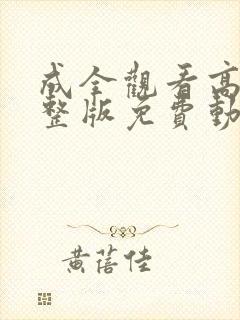 成全觀看高
整版免費動
黃蓓佳